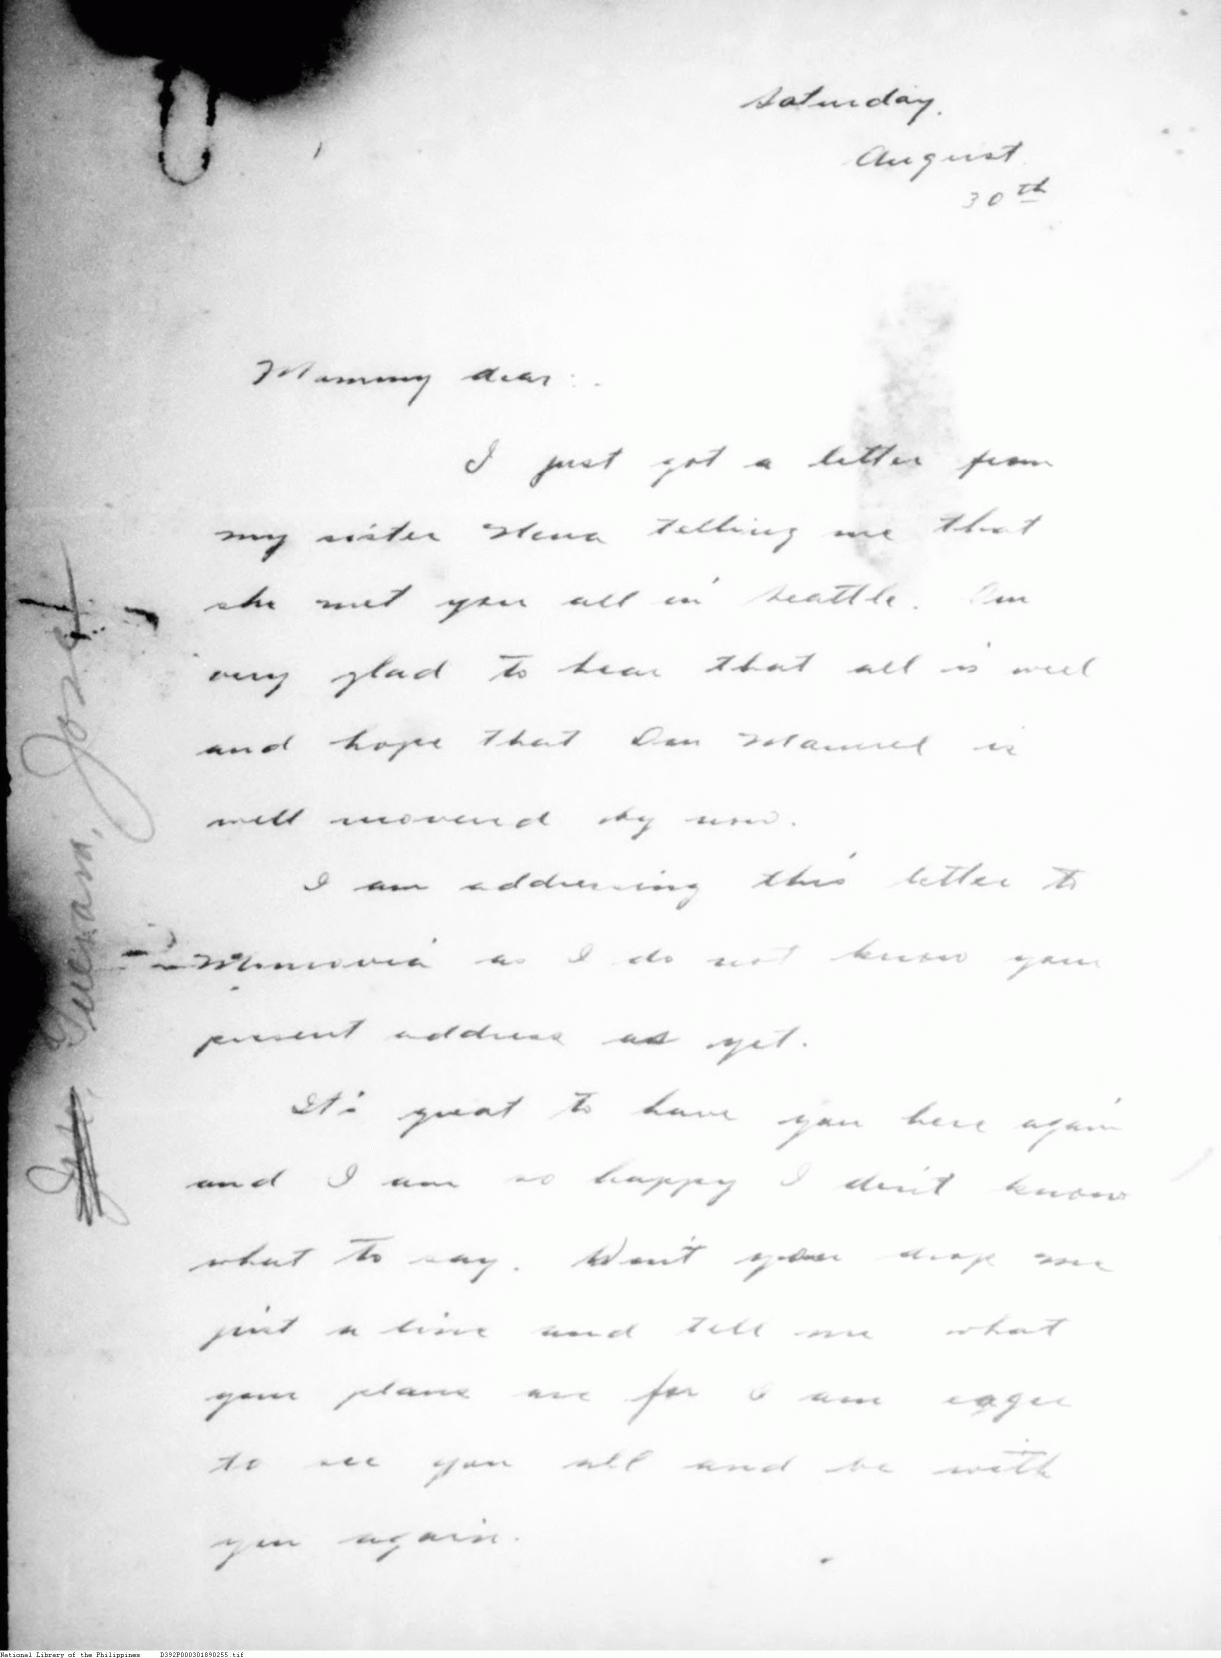 Saturday.
August
30th
Mommy dear:
I just got a letter from
my sister Nena telling me that
she met you all in Seattle. Im
very glad to hear that all is well
and hope that Don Manuel is
well recovered by now.
I am addressing this letter to
Monrovia as I do not know your
present address as yet.
It's great to have you here again
and I am so happy I don't know
what to say. Won't you drop me
just a line and tell me what
your plans are for I am eager
to see you all and be with
you again.
José
National Library of the Philippines D392P000301890255.tif